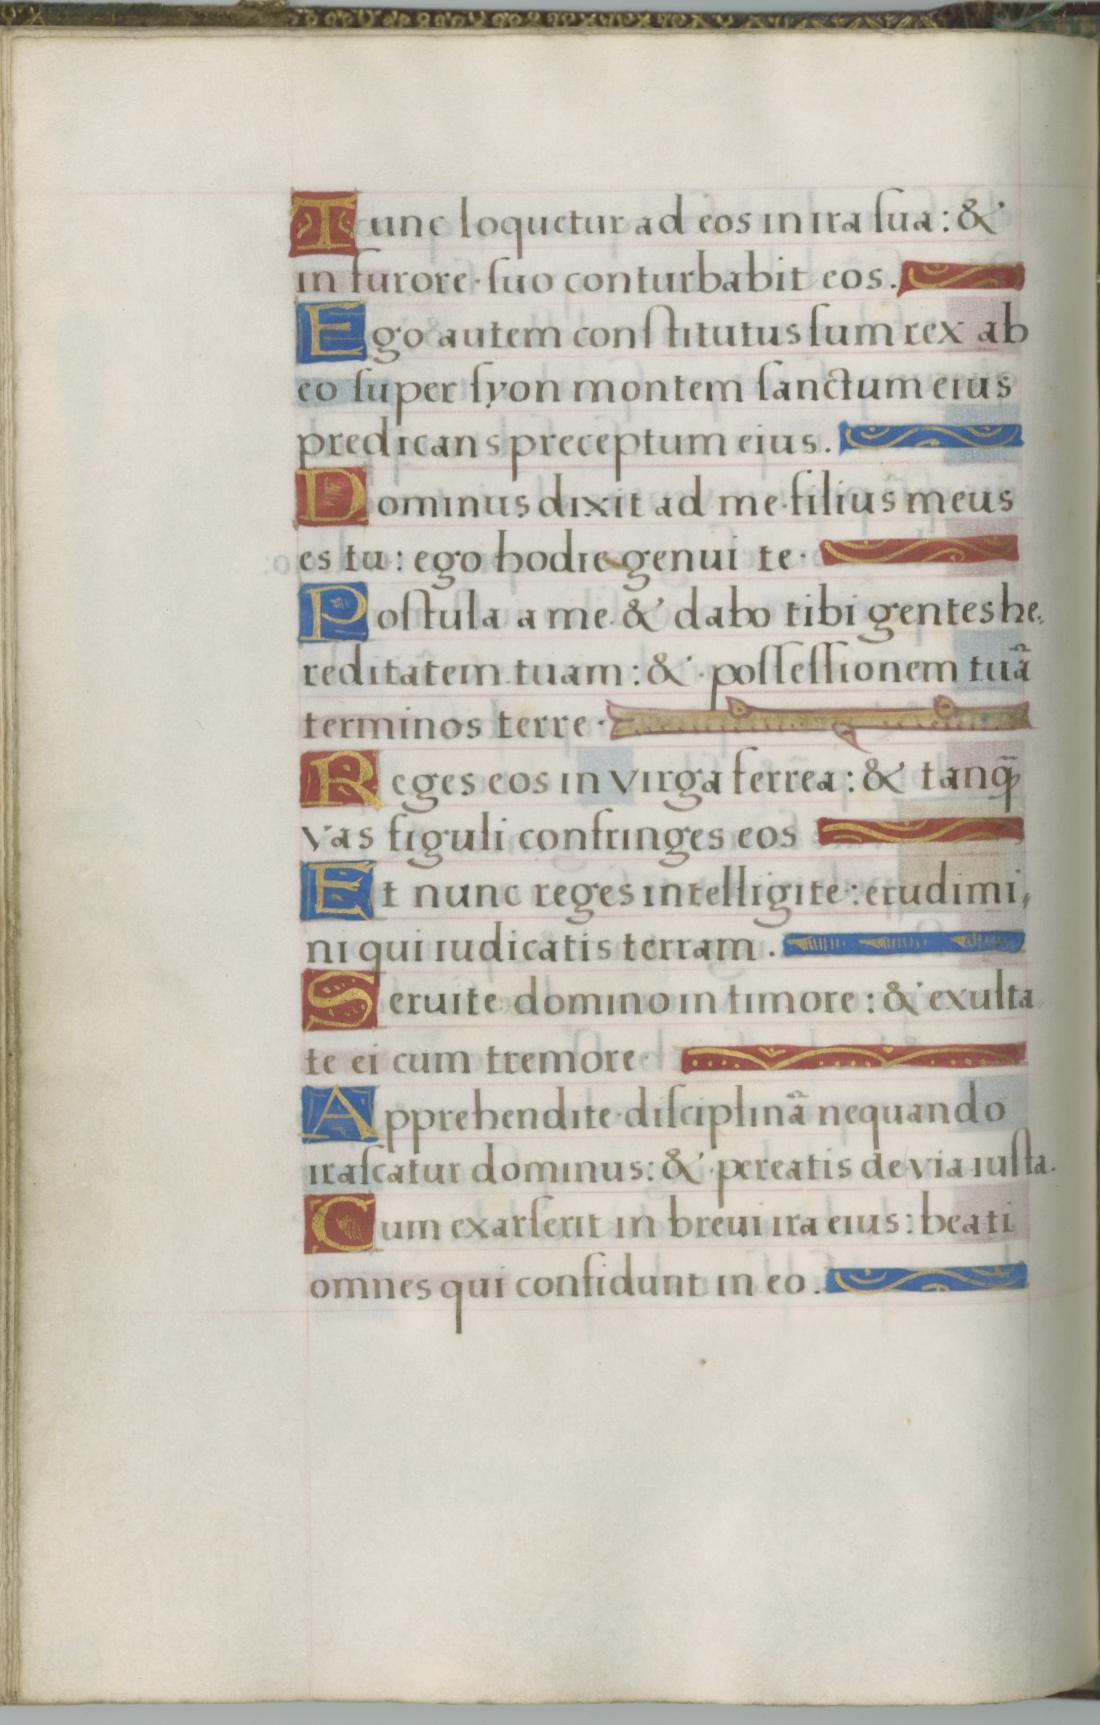 Tunc loquetur ad eos in ira sua: &
in furore suo conturbabit eos.
Ego autem constitutus sum rex ab
eo super syon montem sanctum eius
predicans preceptum eius.
Dominus dixit ad me filius meus
es tu: ego hodie genui te.
Postula a me & dabo tibi gentes he,
reditatem tuam: & possessionem tuã
terminos terre.
Reges eos in virga ferrea: & tanq̃
vas figuli confringes eos
Et nunc reges intelligite: erudimi,
ni qui iudicatis terram.
Seruite domino in timore: & exulta
te ei cum tremore
Apprehendite disciplinã nequando
irascatur dominus: & pereatis de via iusta.
Cum exarserit in breui ira eius: beati
omnes qui confidunt in eo.